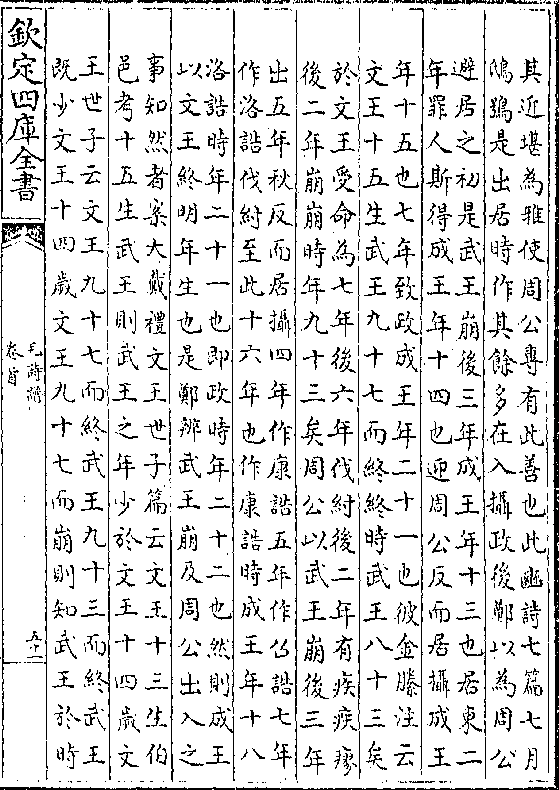 其近堪為雅使周公專有此善也此豳詩七篇七月
鴟鴞是出居時作其餘多在入攝政後鄭以為周公
避居之初是武王崩後三年成王年十三也居東二
年罪人斯得成王年十四也迎周公反而居攝成王
年十五也七年致政成王年二十一也彼金縢注云
文王十五生武王九十七而終終時武王八十三矣
於文王受命為七年後六年伐紂後二年有疾疾瘳
後二年崩崩時年九十三矣周公以武王崩後三年
出五年秋反而居攝四年作康誥五年作召誥七年
作洛誥伐紂至此十六年也作康誥時成王年十八
洛誥時年二十一也即政時年二十二也然則成王
以文王終明年生也是鄭辨武王崩及周公出入之
事知然者案大戴禮文王世子篇云文王十三生伯
邑考十五生武王則武王之年少於文王十四歲文
王世子云文王九十七而終武王九十三而終武王
既少文王十四歲文王九十七而崩則知武王於時
欽定四庫全書
毛詩譜
卷首
五十一